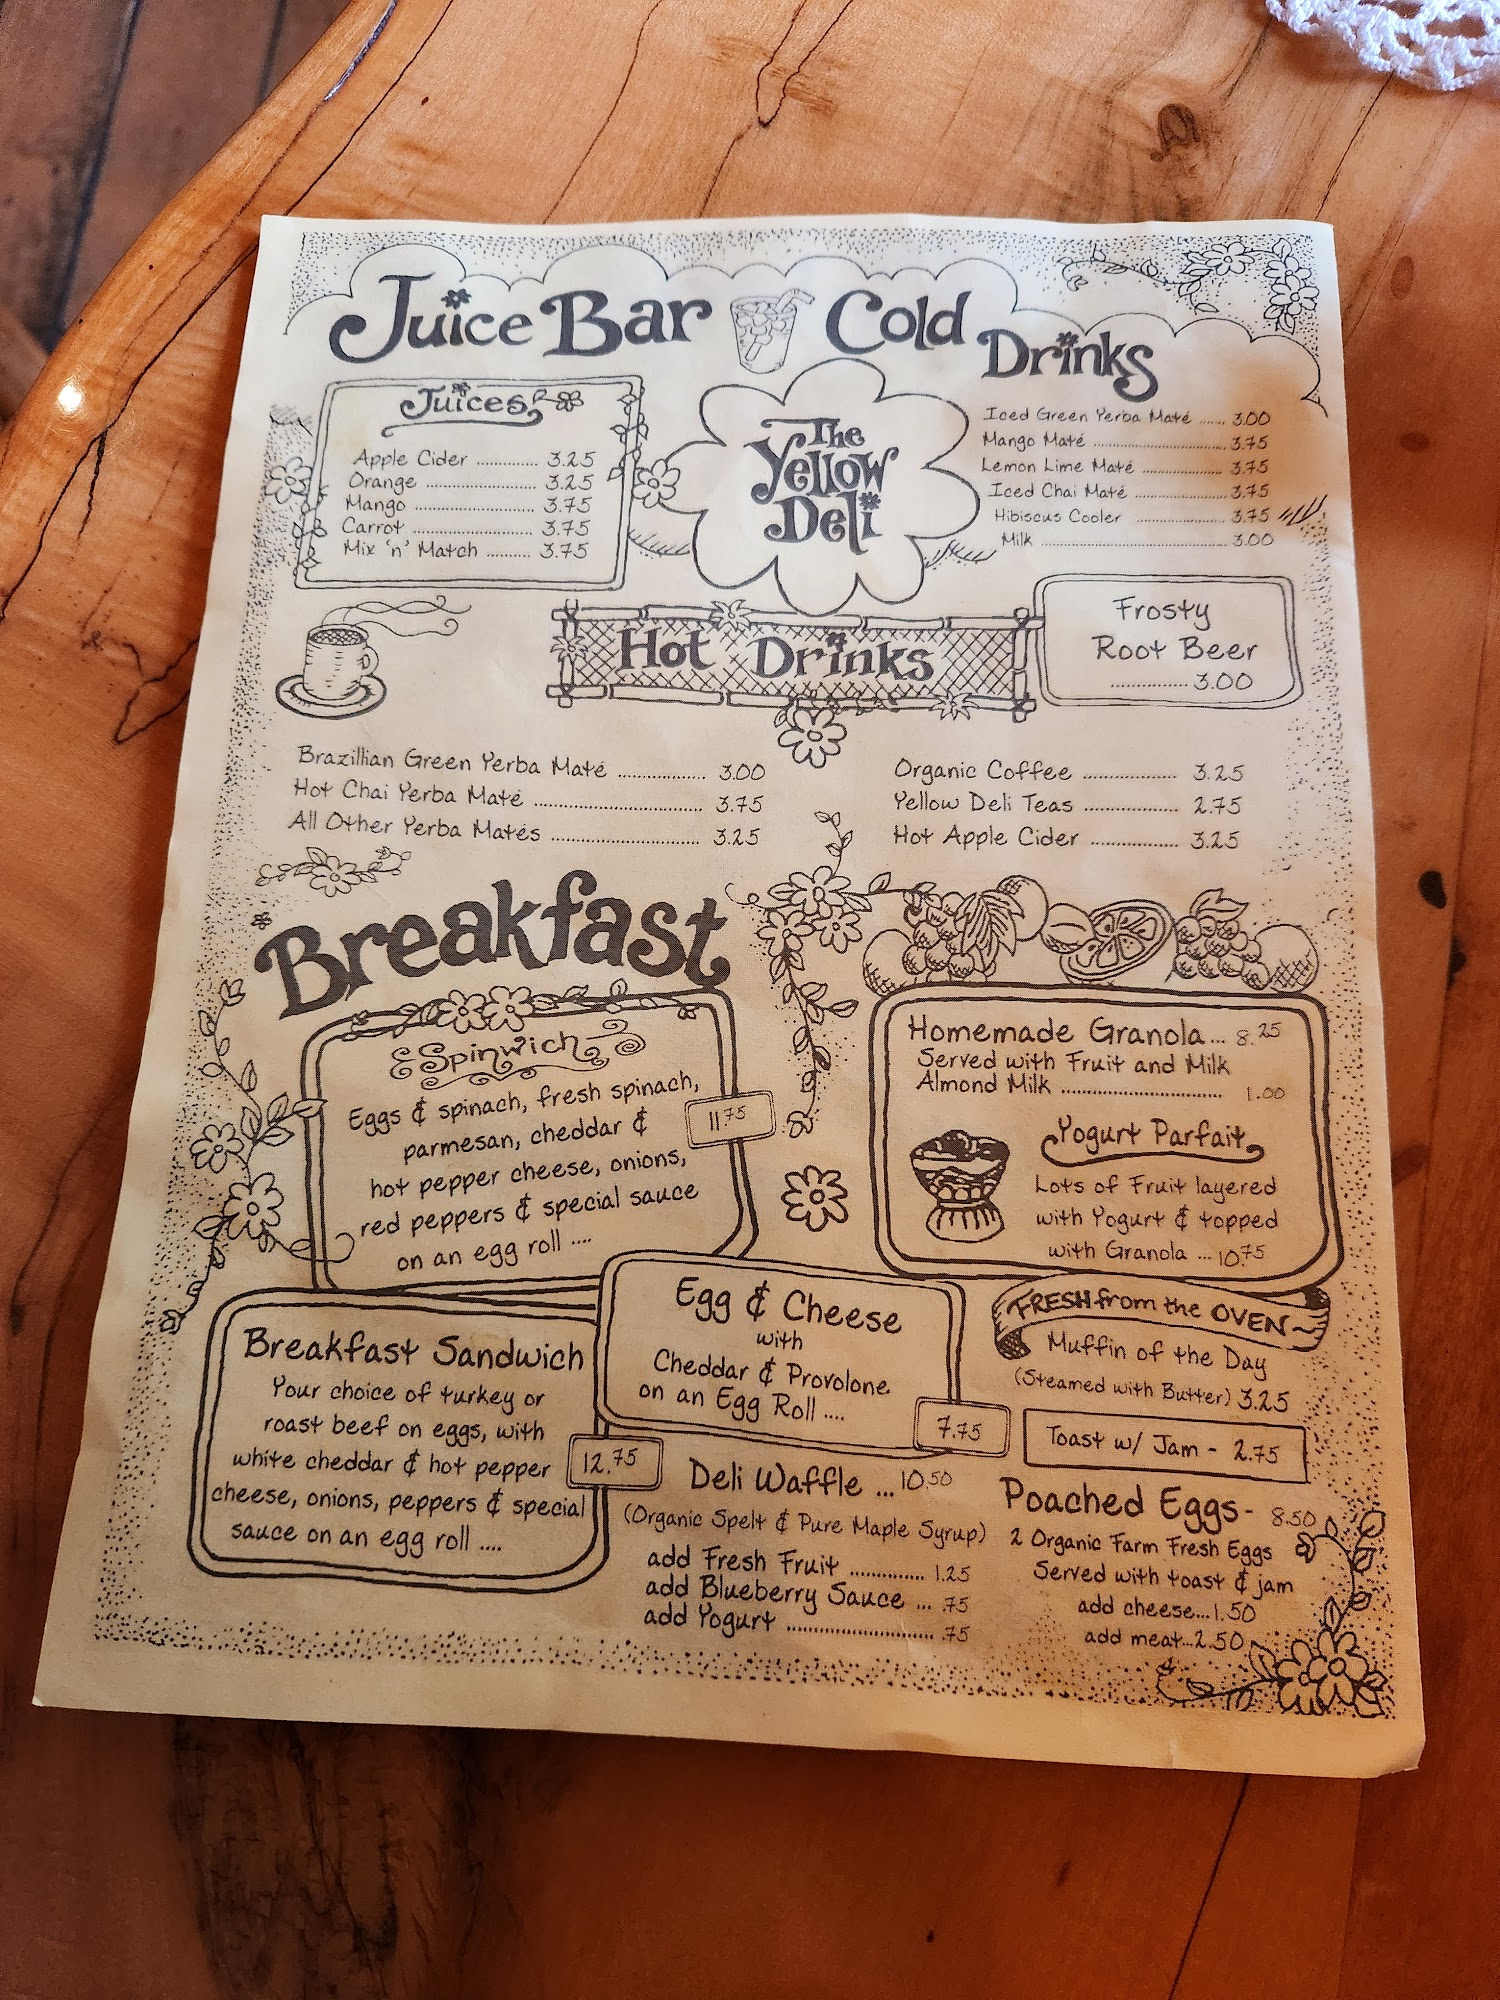 Juice Bar
Cold Drinks
Juices
Apple Cider ............ 3.25
Orange ............ 3.25
Mango ............ 3.75
Carrot ............ 3.75
Mix 'n' Match ......... 3.75
The
Yellow
Deli
Iced Green Yerba Maté ...... 3.00
Mango Maté ............ 3.75
Lemon Lime Maté ............ 3.75
Iced Chai Maté ............ 3.75
Hibiscus Cooler ............ 3.75
Milk ............ 3.00
Frosty
Root Beer
............ 3.00
Hot Drinks
Brazillian Green Yerba Maté ............ 3.00
Hot Chai Yerba Maté ............ 3.75
All Other Yerba Matés ............ 3.25
Organic Coffee ............ 3.25
Yellow Deli Teas ............ 2.75
Hot Apple Cider ............ 3.25
Breakfast
Spinwich
Eggs & spinach, fresh spinach,
parmesan, cheddar &
hot pepper cheese, onions,
red peppers & special sauce
on an egg roll ....
11.75
Homemade Granola... 8.25
Served with Fruit and Milk
Almond Milk ............ 1.00
Yogurt Parfait
Lots of Fruit layered
with Yogurt & topped
with Granola ... 10.75
Breakfast Sandwich
Your choice of turkey or
roast beef on eggs, with
white cheddar & hot pepper
cheese, onions, peppers & special
sauce on an egg roll ....
12.75
Egg & Cheese
with
Cheddar & Provolone
on an Egg Roll ....
7.75
FRESH from the OVEN
Muffin of the Day
(Steamed with Butter) 3.25
Toast w/ Jam - 2.75
Deli Waffle ... 10.50
(Organic Spelt & Pure Maple Syrup)
add Fresh Fruit ............ 1.25
add Blueberry Sauce ... .75
add Yogurt ............ .75
Poached Eggs - 8.50
2 Organic Farm Fresh Eggs
Served with toast & jam
add cheese...1.50
add meat...2.50